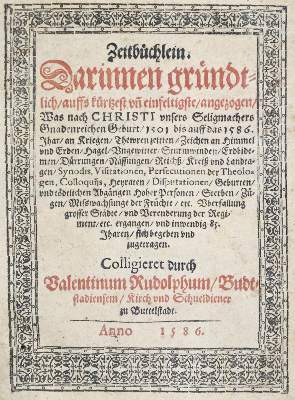 Zeitbüchlein.
Darinnen gründt-
lich/ auffs kürtzest vñ einfeltigste/ angezogen/
Was nach CHRISTI vnsers Seligmachers
Gnadenreichen Geburt/ 1501 bis auff das 1586.
Jhar/ an Kriegen/ Thewren zeitten/ Zeichen an Himmel
vnd Erden/ Hagel/ Vngewitter/ Sturmwinden/ Erdbide-
men/ Dürrungen/ Nässungen/ Reichß/ Kreiß vnd Landta-
gen/ Synodis, Visitationen, Persecutionen der Theolo-
gen, Colloquiis, Heyraten/ Disputationen, Geburten/
vnd tödtlichen Abgängen hoher Personen: Sterben/ Zü-
gen/ Mißwachsunge der Früchte/ etc. Vberfallung
grosser Städte/ vnd Verenderung der Regi-
ment/ etc. ergangen/ vnd inwendig 85.
Jharen/ sich begeben vnd
zugetragen.
Colligieret durch
Valentinum Rudolphum/ Budt-
stadiensem/ Kirch vnd Schueldiener
zu Buttelstadt.
Anno 1586.